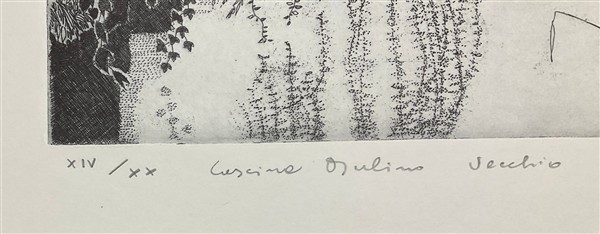 XIV/XX Cascina Mulino Vecchio